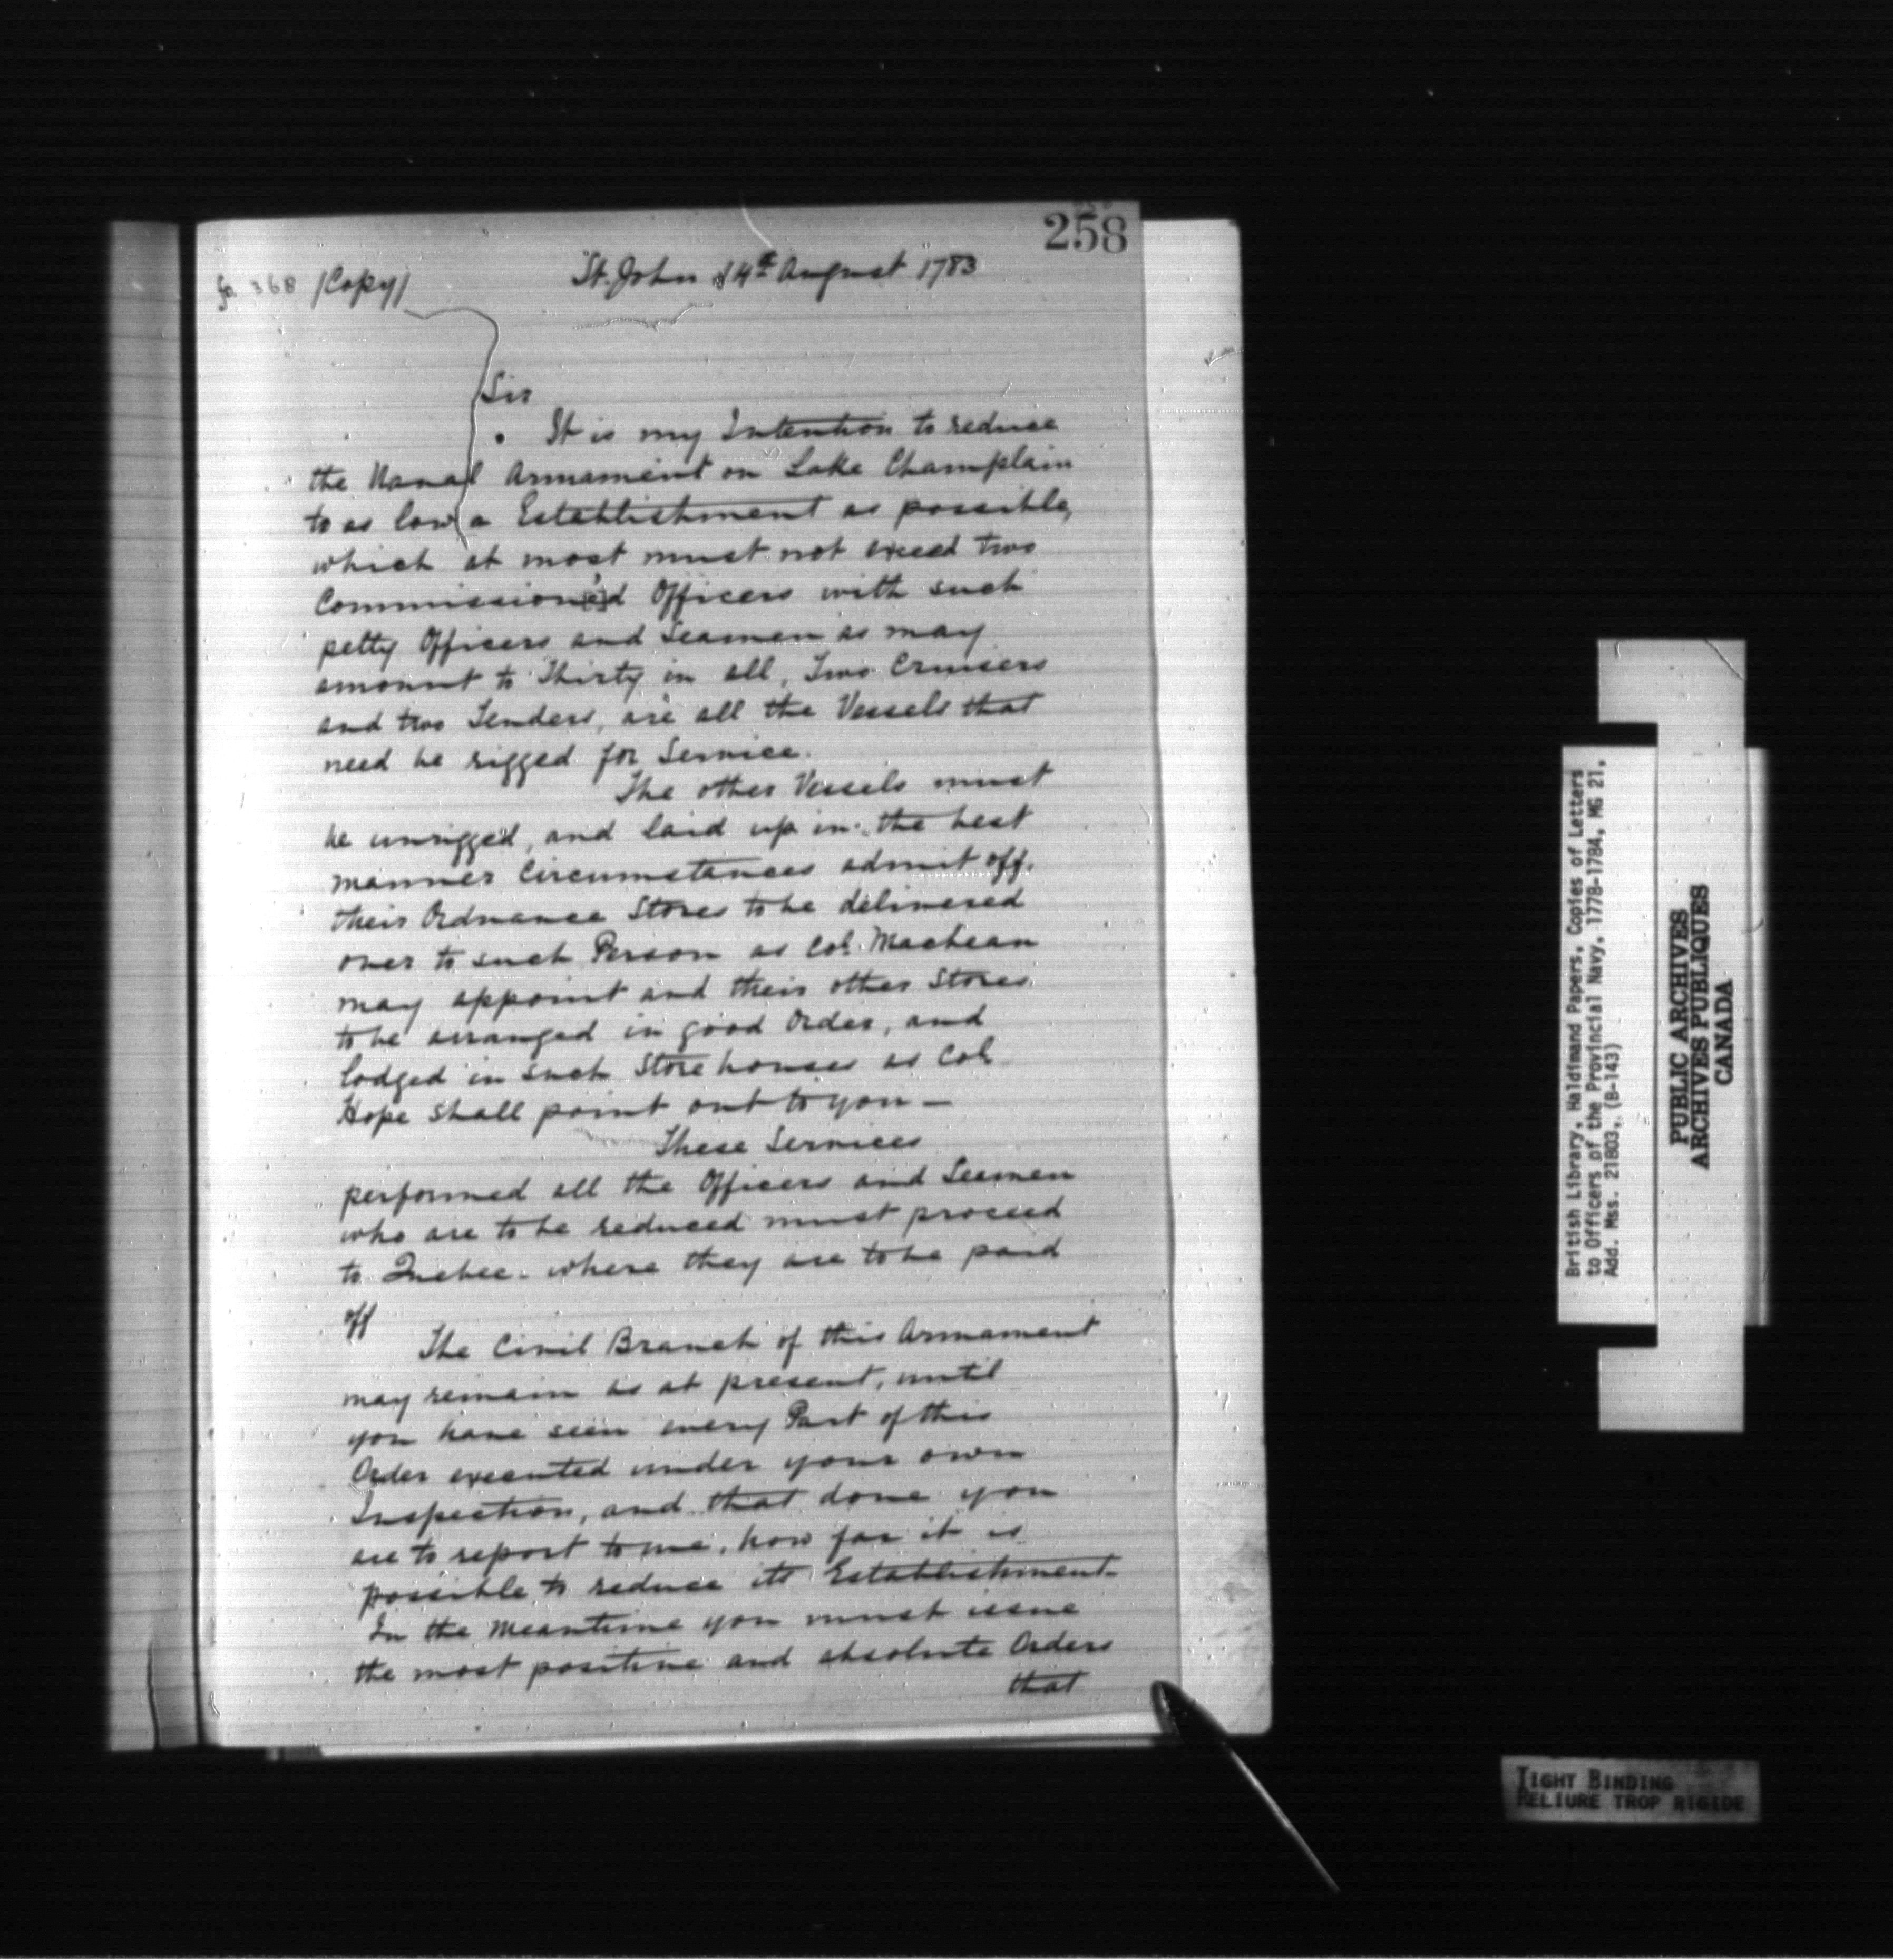 258
fo. 368 (Copy) St. John 14th August 1783
Sir
It is my Intention to reduce
the Naval Armament on Lake Champlain
to as low a Establishment as possible,
which at most must not exceed two
Commission'd Officers with such
petty Officers and Seamen as may
amount to Thirty in all, Two Cruisers
and two Tenders, are all the Vessels that
need be rigged for Service.
The other Vessels must
be unrigged, and laid up in the best
manner Circumstances admit off.
their Ordnance Stores to be delivered
over to such Person as Col. Macbean
may appoint and their other Stores
to be arranged in good Order, and
lodged in such Store houses as Col.
Hope shall point out to you —
These Services
performed all the Officers and Seamen
who are to be reduced must proceed
to Quebec. where they are to be paid
off
The Civil Branch of this Armament
may remain as at present, until
you have seen every Part of this
Order executed under your own
Inspection, and that done you
are to report to me, how far it is
possible to reduce its Establishment.
In the meantime you must issue
the most positive and absolute Orders
that
British Library, Haldimand Papers, Copies of Letters
to Officers of the Provincial Navy, 1778-1784, MG 21,
Add. Mss. 21803, (B-143)
PUBLIC ARCHIVES
ARCHIVES PUBLIQUES
CANADA
TIGHT BINDING
RELIURE TROP RIGIDE